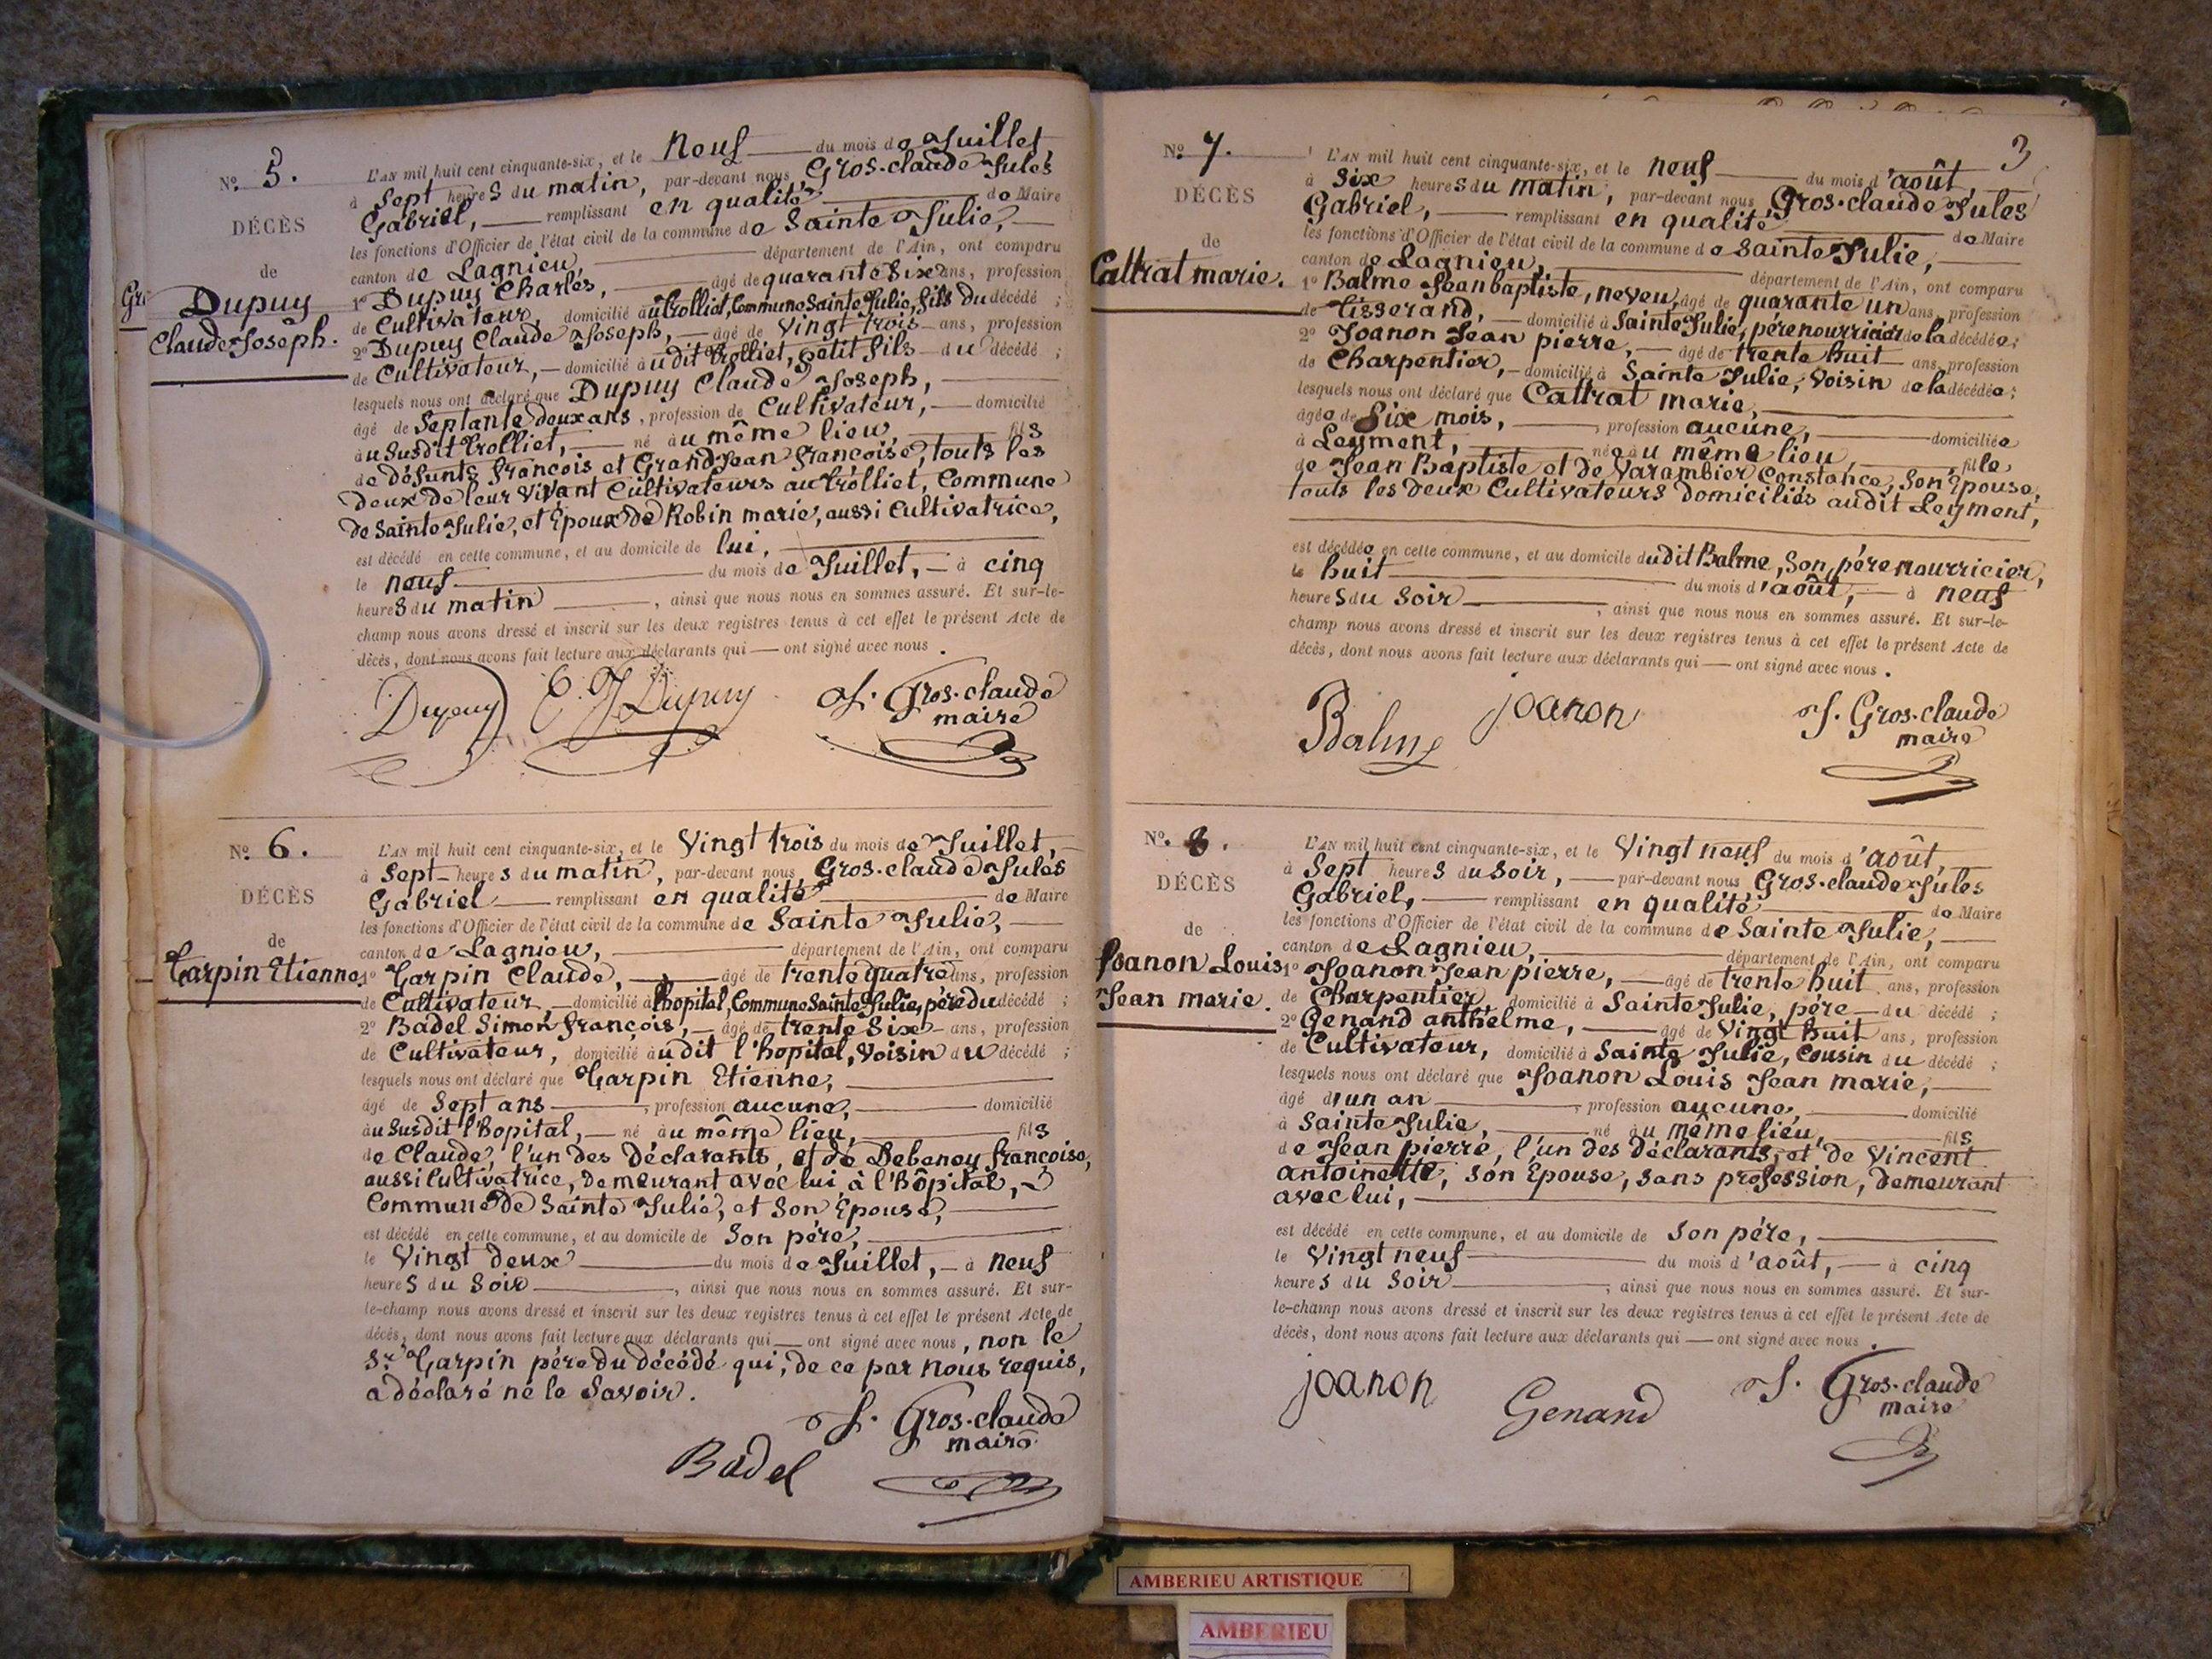 N.º 5.
DÉCÈS
de
Gr
Dupuy
Claude Joseph.
L'AN mil huit cent cinquante-six, et le neuf du mois de Juillet,
à Sept heures du matin, par-devant nous Gros-claude Jules
Gabriel, remplissant en qualité de Maire
les fonctions d'Officier de l'état civil de la commune de Sainte Julie,
canton de Lagnieu, département de l'Ain, ont comparu
1º Dupuy Charles, âgé de quarante Six ans, profession
de Cultivateur, domicilié au trolliet, Commune Sainte Julie, fils du décédé ;
2º Dupuy Claude Joseph, âgé de Vingt trois ans, profession
de Cultivateur, domicilié audit trolliet, petit fils du décédé ;
lesquels nous ont déclaré que Dupuy Claude Joseph,
âgé de Septante deux ans, profession de Cultivateur, domicilié
au susdit trolliet, né au même lieu, fils
de défunts françois et Grand Jean françoise, touts les
deux de leur vivant Cultivateurs au trolliet, Commune
de Sainte Julie, et Epoux de Robin marie, aussi Cultivatrice,
est décédé en cette commune, et au domicile de lui,
le neuf du mois de Juillet, à cinq
heures du matin, ainsi que nous nous en sommes assuré. Et sur-le-
champ nous avons dressé et inscrit sur les deux registres tenus à cet effet le présent Acte de
décès, dont nous avons fait lecture aux déclarants qui ont signé avec nous.
Dupuy Dupuy J. Gros-claude
maire
N.º 6.
DÉCÈS
de
Tarpin Etienne.
L'AN mil huit cent cinquante-six, et le Vingt trois du mois de Juillet,
à Sept heures du matin, par-devant nous Gros-claude Jules
Gabriel remplissant en qualité de Maire
les fonctions d'Officier de l'état civil de la commune de Sainte Julie,
canton de Lagnieu, département de l'Ain, ont comparu
1º Tarpin Claude, âgé de trente quatre ans, profession
de Cultivateur, domicilié à l'hopital, Commune Sainte Julie, père du décédé ;
2º Badel Simon françois, âgé de trente Six ans, profession
de Cultivateur, domicilié audit l'hopital, Voisin du décédé ;
lesquels nous ont déclaré que Tarpin Etienne,
âgé de Sept ans, profession aucune, domicilié
au susdit l'hopital, né au même lieu, fils
de Claude, l'un des Déclarants, et de Debeney françoise,
aussi Cultivatrice, demeurant avec lui à l'hôpital,
Commune de Sainte Julie, et Son Epouse,
est décédé en cette commune, et au domicile de Son père,
le Vingt deux du mois de Juillet, à neuf
heures du Soir, ainsi que nous nous en sommes assuré. Et sur-
le-champ nous avons dressé et inscrit sur les deux registres tenus à cet effet le présent Acte de
décès, dont nous avons fait lecture aux déclarants qui ont signé avec nous, non le
S.r Tarpin père du décédé qui, de ce par nous requis,
a déclaré ne le Savoir.
J. Gros-claude
maire
Badel
3
N.º 7.
DÉCÈS
de
Cattrat marie.
L'AN mil huit cent cinquante-six, et le neuf du mois d'août,
à Six heures du matin, par-devant nous Gros-claude Jules
Gabriel, remplissant en qualité de Maire
les fonctions d'Officier de l'état civil de la commune de Sainte Julie,
canton de Lagnieu, département de l'Ain, ont comparu
1º Balme Jean baptiste, neveu, âgé de quarante un ans, profession
de Tisserand, domicilié à Sainte Julie, père nourricier de la décédée ;
2º Joanon Jean pierre, âgé de trente huit ans, profession
de Charpentier, domicilié à Sainte Julie, Voisin de la décédée ;
lesquels nous ont déclaré que Cattrat marie,
âgée de Six mois, profession aucune, domiciliée
à Leyment, née au même lieu, fille
de Jean Baptiste et de Varambier Constance, Son Epouse,
touts les deux Cultivateurs domiciliés audit Leyment,
est décédée en cette commune, et au domicile dudit Balme, Son père nourricier,
le huit du mois d'août, à neuf
heures du Soir, ainsi que nous nous en sommes assuré. Et sur-le-
champ nous avons dressé et inscrit sur les deux registres tenus à cet effet le présent Acte de
décès, dont nous avons fait lecture aux déclarants qui ont signé avec nous.
Balme joanon J. Gros-claude
maire
N.º 8.
DÉCÈS
de
Joanon Louis
Jean marie.
L'AN mil huit cent cinquante-six, et le Vingt neuf du mois d'août,
à Sept heures du Soir, par-devant nous Gros-claude Jules
Gabriel, remplissant en qualité de Maire
les fonctions d'Officier de l'état civil de la commune de Sainte Julie,
canton de Lagnieu, département de l'Ain, ont comparu
1º Joanon Jean pierre, âgé de trente huit ans, profession
de Charpentier, domicilié à Sainte Julie, père du décédé ;
2º Genand anthelme, âgé de Vingt huit ans, profession
de Cultivateur, domicilié à Sainte Julie, Cousin du décédé ;
lesquels nous ont déclaré que Joanon Louis Jean marie,
âgé d'un an, profession aucune, domicilié
à Sainte Julie, né au même lieu, fils
de Jean pierre, l'un des déclarants, et de Vincent
antoinette, Son Epouse, Sans profession, demeurant
avec lui,
est décédé en cette commune, et au domicile de Son père,
le Vingt neuf du mois d'août, à cinq
heures du Soir, ainsi que nous nous en sommes assuré. Et sur-
le-champ nous avons dressé et inscrit sur les deux registres tenus à cet effet le présent Acte de
décès, dont nous avons fait lecture aux déclarants qui ont signé avec nous.
joanon Genand J. Gros-claude
maire
AMBERIEU ARTISTIQUE
AMBERIEU